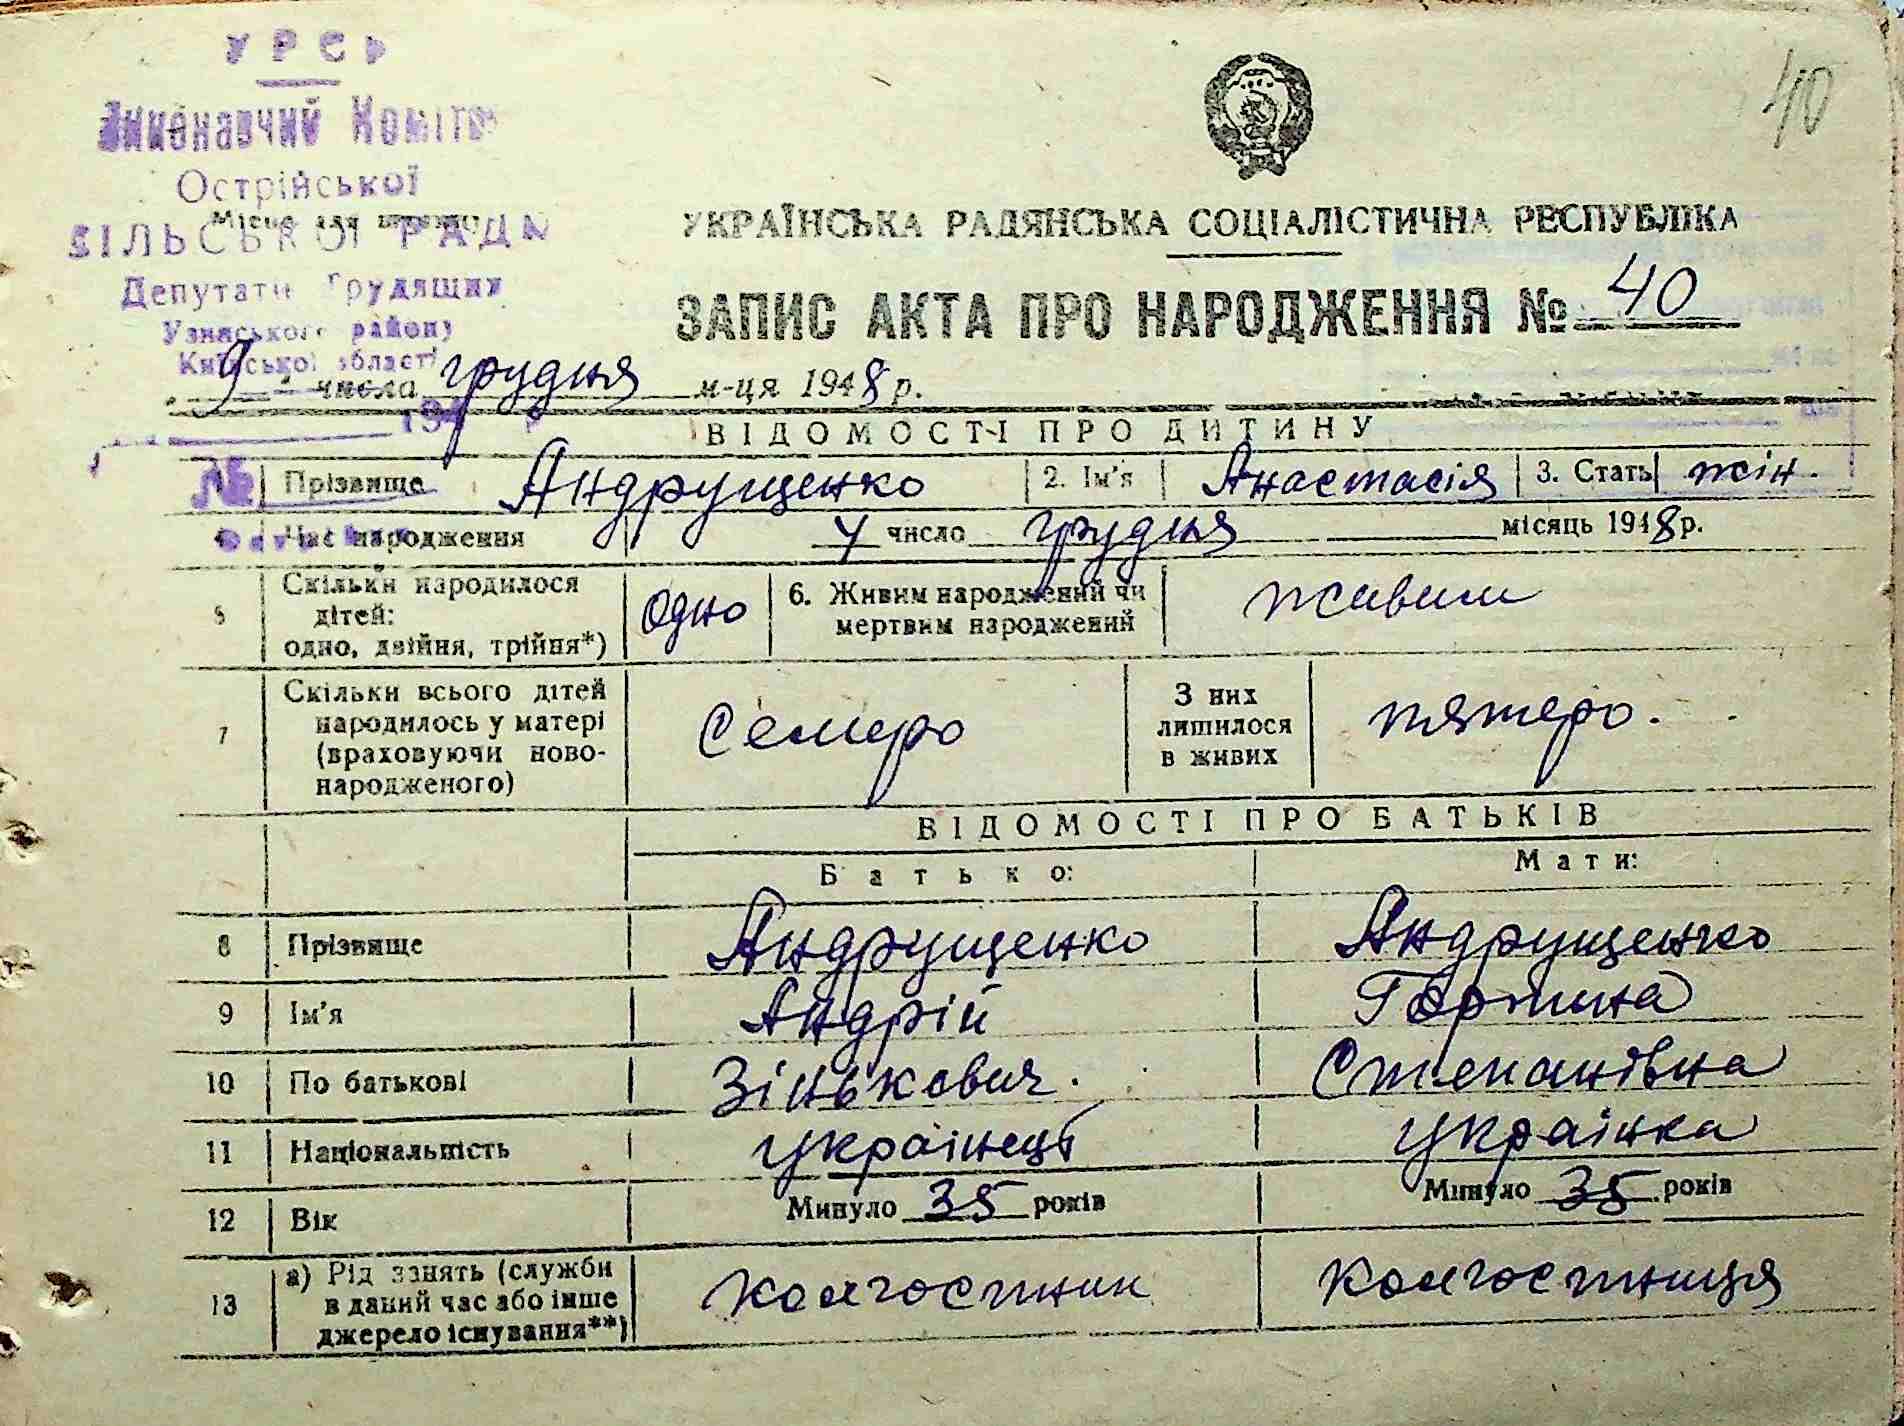 УРСР
Виконавчий Коміте
Острійської
Місце для штампу
СІЛЬСЬКОЇ РАДИ
Депутатів Трудящих
району
Київської області
194
№
40
УКРАЇНСЬКА РАДЯНСЬКА СОЦІАЛІСТИЧНА РЕСПУБЛІКА
ЗАПИС АКТА ПРО НАРОДЖЕННЯ № 40
„9" числа грудня м-ця 1948 р.
ВІДОМОСТІ ПРО ДИТИНУ
Прізвище Андрущенко 2. Ім'я Анастасія 3. Стать жін.
4 Час народження 4 число грудня місяць 1948 р.
5 Скільки народилося дітей: одно, двійня, трійня*) одно 6. Живим народжений чи мертвим народжений живим
7 Скільки всього дітей народилось у матері (враховуючи новонародженого) Семеро З них лишилося в живих пятеро.
ВІДОМОСТІ ПРО БАТЬКІВ
Батько: Мати:
8 Прізвище Андрущенко Андрущенко
9 Ім'я Андрій
10 По батькові Зінькович. Степанівна
11 Національність українець українка
12 Вік Минуло 35 років Минуло 35 років
13 а) Рід занять (служби в даний час або інше джерело існування**) колгоспник колгоспниця